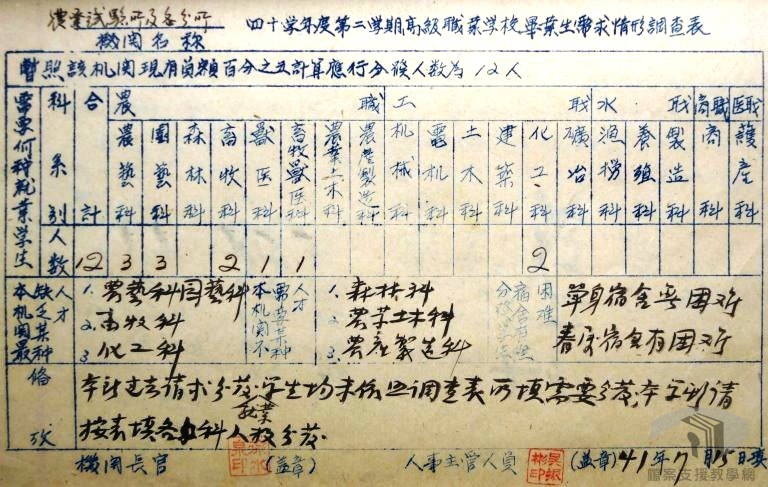 農業試驗所及各分所
機関名称
四十學年度第二學期高級職業學校畢業生需求情形調查表
暫照該机関現有員額百分之五計算應行分發人数為12人
需要何科就業學生
科系別 合計 農職 工職 水職 商職 医職
農藝科 園藝科 森林科 畜牧科 獸医科 畜牧獸医科 農業土木科 農產製造科 机械科 電机科 土木科 建築科 化工科 礦冶科 漁撈科 養殖科 製造科 商科 護產科
人数 12 3 3 2 1 1 2
本机関最缺乏某种人才
1. 農藝科園藝科
2. 畜牧科
3. 化工科
本机関不需要某种人才
1. 森林科
2. 農業土木科
3. 農產製造科
宿舍有無困难
單身宿舍無困难
眷房宿舍有困难
備攷
本所过去請求分發學生均未依照調查表所填需要分發,本年則請
就業
按表填各科人数分發
機関長官 (蓋章)
人事主管人員
(蓋章)
41年7月15日填
檔案支援教學網